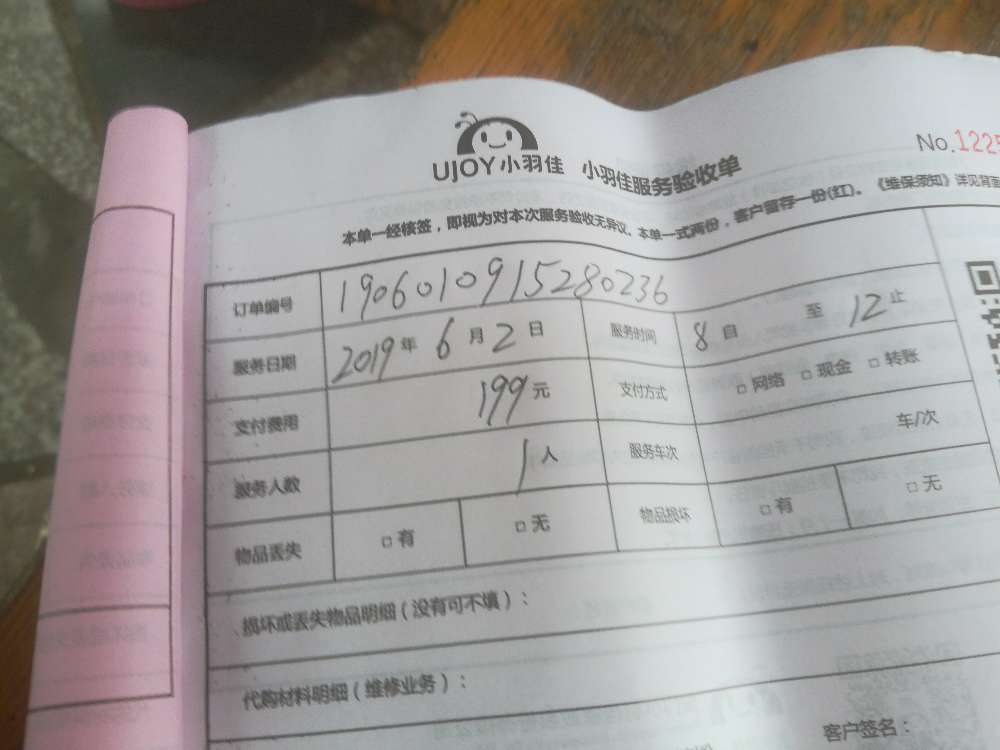 UJOY小羽佳 小羽佳服务验收单 No.1225
本单一经核签，即视为对本次服务验收无异议。本单一式两份，客户留存一份(红)。《维保须知》详见背面
订单编号 1906010915280236
服务日期 2019年 6月2日 服务时间 8自 至 12止
支付费用 199元 支付方式 □网络 □现金 □转账
服务人数 1人 服务车次 车/次
物品丢失 □有 □无 物品损坏 □有 □无
损坏或丢失物品明细（没有可不填）：
代购材料明细（维修业务）：
客户签名：